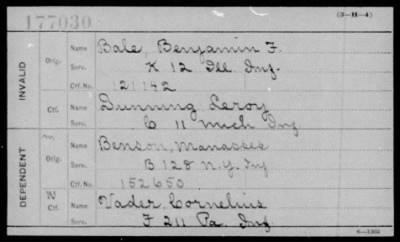 177030
(3-H-4)
INVALID
Orig.
Name Bale, Benjamin F.
Serv. K 12 Ill. Inf.
Ctf. No. 121142
Ctf.
Name Dunning Leroy
Serv. C 11 Mich Inf
DEPENDENT
Orig.
Name Benson, Manasses
Serv. B 128 N.Y. Inf
Ctf. No. 152650
W
Ctf.
Name Vader, Cornelius
Serv. F 211 Pa. Inf